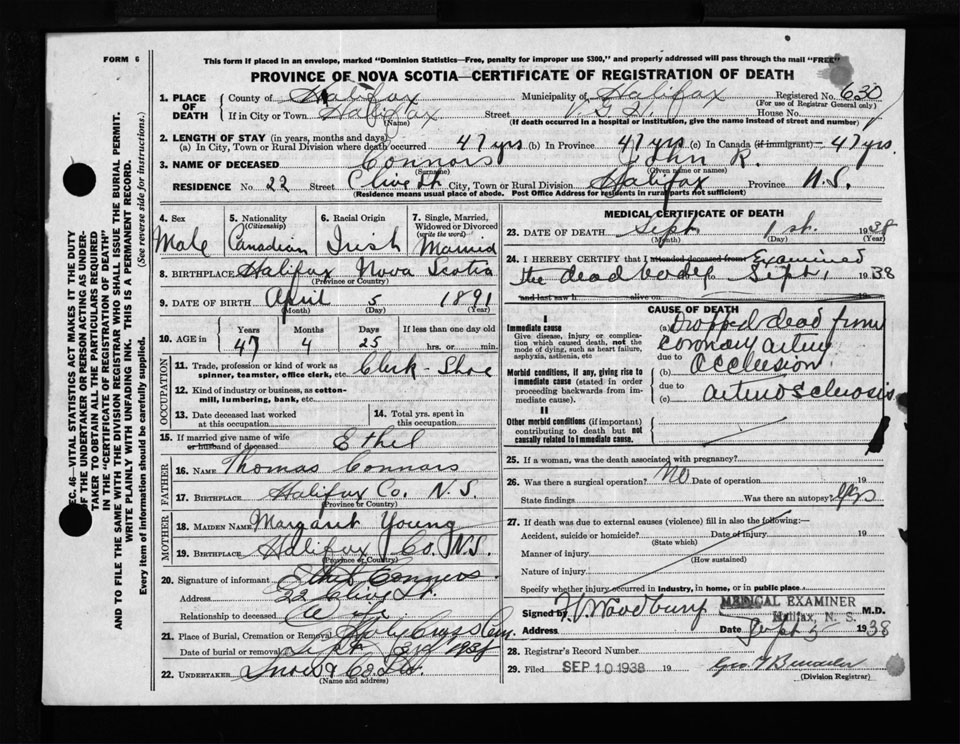 FORM 6
This form if placed in an envelope, marked "Dominion Statistics—Free, penalty for improper use $300," and properly addressed will pass through the mail "FREE"
PROVINCE OF NOVA SCOTIA—CERTIFICATE OF REGISTRATION OF DEATH
1. PLACE OF DEATH
County of Halifax Municipality of Halifax Registered No. 630
(For use of Registrar General only)
If in City or Town Halifax Street V.G.H. House No.
(Name) (If death occurred in a hospital or institution, give the name instead of street and number)
2. LENGTH OF STAY (in years, months and days)
(a) In City, Town or Rural Division where death occurred 47 yrs (b) In Province 47 yrs (c) In Canada (if immigrant) 47 yrs.
3. NAME OF DECEASED Connors John R.
(Surname) (Given name or names)
RESIDENCE No. 22 Street Clive St. City, Town or Rural Division Halifax Province N.S.
(Residence means usual place of abode. Post Office Address for residents in rural parts not sufficient)
4. Sex Male
5. Nationality (Citizenship) Canadian
6. Racial Origin Irish
7. Single, Married, Widowed or Divorced (write the word) Married
8. BIRTHPLACE Halifax Nova Scotia
(Province or Country)
9. DATE OF BIRTH April 5 1891
(Month) (Day) (Year)
10. AGE in Years 47 Months 4 Days 25 If less than one day old hrs. or min.
OCCUPATION
11. Trade, profession or kind of work as spinner, teamster, office clerk, etc. Clerk - Shoe
12. Kind of industry or business, as cotton-mill, lumbering, bank, etc.
13. Date deceased last worked at this occupation
14. Total yrs. spent in this occupation
15. If married give name of wife or husband of deceased Ethel
FATHER
16. NAME Thomas Connors
17. BIRTHPLACE Halifax Co. N.S.
(Province or Country)
MOTHER
18. MAIDEN NAME Margaret Young
19. BIRTHPLACE Halifax Co. N.S.
(Province or Country)
20. Signature of informant Ethel Connors
Address 22 Clive St.
Relationship to deceased Wife
21. Place of Burial, Cremation or Removal Holy Cross Cem.
Date of burial or removal Sept 3rd 1938
22. UNDERTAKER Snow & Co. Ltd.
(Name and address)
MEDICAL CERTIFICATE OF DEATH
23. DATE OF DEATH Sept 1st 1938
(Month) (Day) (Year)
24. I HEREBY CERTIFY that I attended deceased from Examined
the dead body Sept 1 1938
and last saw h alive on 19
CAUSE OF DEATH
I
Immediate cause
Give disease, injury or complication which caused death, not the mode of dying, such as heart failure, asphyxia, asthenia, etc
Morbid conditions, if any, giving rise to immediate cause (stated in order proceeding backwards from immediate cause).
II
Other morbid conditions (if important) contributing to death but not causally related to immediate cause.
(a) Dropped dead from
coronary artery
due to
(b) occlusion
due to
(c) arteriosclerosis
25. If a woman, was the death associated with pregnancy?
26. Was there a surgical operation? No Date of operation 19
State findings Was there an autopsy? yes
27. If death was due to external causes (violence) fill in also the following:—
Accident, suicide or homicide? Date of injury 19
(State which)
Manner of injury
(How sustained)
Nature of injury
Specify whether injury occurred in industry, in home, or in public place
Signed by Woodbury MEDICAL EXAMINER M.D.
Halifax, N. S.
Address Date Sept 3 1938
28. Registrar's Record Number
29. Filed SEP 10 1938 19
(Division Registrar)
SEC. 46—VITAL STATISTICS ACT MAKES IT THE DUTY
OF THE UNDERTAKER OR PERSON ACTING AS UNDER-
TAKER TO OBTAIN ALL THE PARTICULARS REQUIRED
IN THE "CERTIFICATE OF REGISTRATION OF DEATH"
AND TO FILE THE SAME WITH THE DIVISION REGISTRAR WHO SHALL ISSUE THE BURIAL PERMIT.
WRITE PLAINLY WITH UNFADING INK. THIS IS A PERMANENT RECORD.
Every item of information should be carefully supplied. (See reverse side for instructions.)